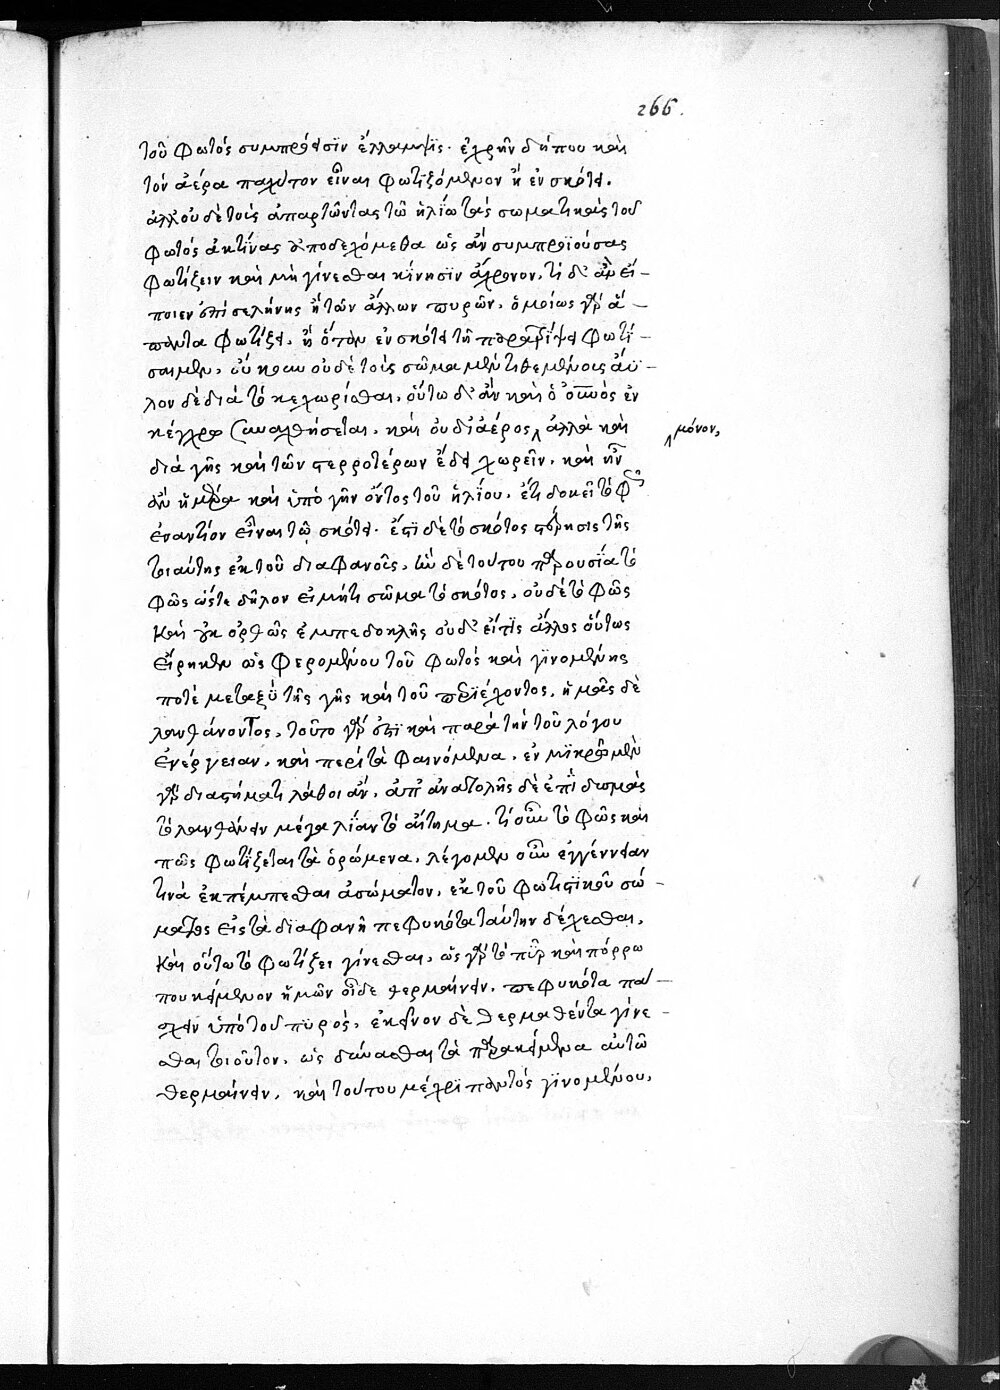 266.
τοῦ φωτός συμπράγσϊν ἔλλαμψις. ἐχρῆν δήπου καὶ
τὸν ἀέρα παχύτον εἶναι φωτιζόμενον ἢ ἐν σκότει.
ἀλλ' οὐδὲ τοῖς ἀπαρτῶντας τῶ ἡλίω τὰς σωματικὰς τοῦ
φωτός ἀκτῖνας ὑποδεχόμεθα ὡς ἂν συμπροϊούσας
φωτίζειν καὶ μὴ γίνεσθαι κίνησϊν ἄχρονον, τί δ' ἂν εἴ-
ποιεν ἐπὶ σελήνης ἢ τῶν ἄλλων πυρῶν, ὁμοίως γὰρ ἅ-
παντα φωτίζει, ἢ ὅταν ἐν σκότει τῆ φωτί-
σωμεν, οὐκοῦν οὐδὲ τοῖς σῶμα μὲν τιθεμένοις ἄϋ-
λον δὲ διὰ τὸ κεχωρίσθαι, οὕτω δ' ἂν καὶ ὁ ἐν
κέγχρω συναισθήσεται, καὶ οὐ δι' ἀέρος ἀλλὰ καὶ
μόνον,
διὰ γῆς καὶ τῶν στερροτέρων ἔδει χωρεῖν, καὶ ἦν
ἂν ἡμέρα καὶ ὑπὸ γῆν ὄντος τοῦ ἡλίου, ἔτι δοκεῖ τὸ φῶς
ἐναντίον εἶναι τῶ σκότει. ἔστι δὲ τὸ σκότος στέρησις τῆς
τοιαύτης ἐκ τοῦ διαφανοῦς, ὧν δὲ τούτου παρουσία τὸ
φῶς ὥστε δῆλον εἰ μήτι σῶμα τὸ σκότος, οὐδὲ τὸ φῶς
καὶ οὐκ ὀρθῶς ἐμπεδοκλῆς οὐδ' εἴ τϊς ἄλλος οὕτως
εἴρηκεν ὡς φερομένου τοῦ φωτός καὶ γϊνομένης
ποτὲ μεταξὺ τῆς γῆς καὶ τοῦ περϊέχοντος, ἡμᾶς δὲ
λανθάνοντος, τοῦτο γάρ ἐστι καὶ παρὰ τὴν τοῦ λόγου
ἐνέργειαν, καὶ περὶ τὰ φαινόμενα, ἐν μϊκρῶ μὲν
γὰρ διαστήματι λάθοι ἄν, ἀπ' ἀνατολῆς δὲ ἐπὶ δυσμὰς
τὸ λανθάνειν μέγα λΐαν τὸ αἴτημα. τί οὖν τὸ φῶς καὶ
πῶς φωτίζεται τὰ ὁρώμενα, λέγομεν οὖν ἐνέργειαν
τινὰ ἐκπέμπεσθαι ἀσώματον, ἐκ τοῦ φωτιστϊκοῦ σώ-
ματος εἰς τὰ διαφανῆ πεφυκότα ταύτην δέχεσθαι,
καὶ οὕτω τὸ φωτίζει γίνεσθαι, ὡς γὰρ τὸ πῦρ καὶ πόρρω
που κείμενον ἡμῶν οἶδε θερμαίνειν, πεφυκότα πά-
σχειν ὑπὸ τοῦ πυρὸς, ἐκεῖνον δὲ θερμαθέντα γίνε-
σθαι τοιοῦτον, ὡς δύνασθαι τὰ παρακείμενα αὐτῶ
θερμαίνειν, καὶ τούτου μέχρϊ παντός γϊνομένου,